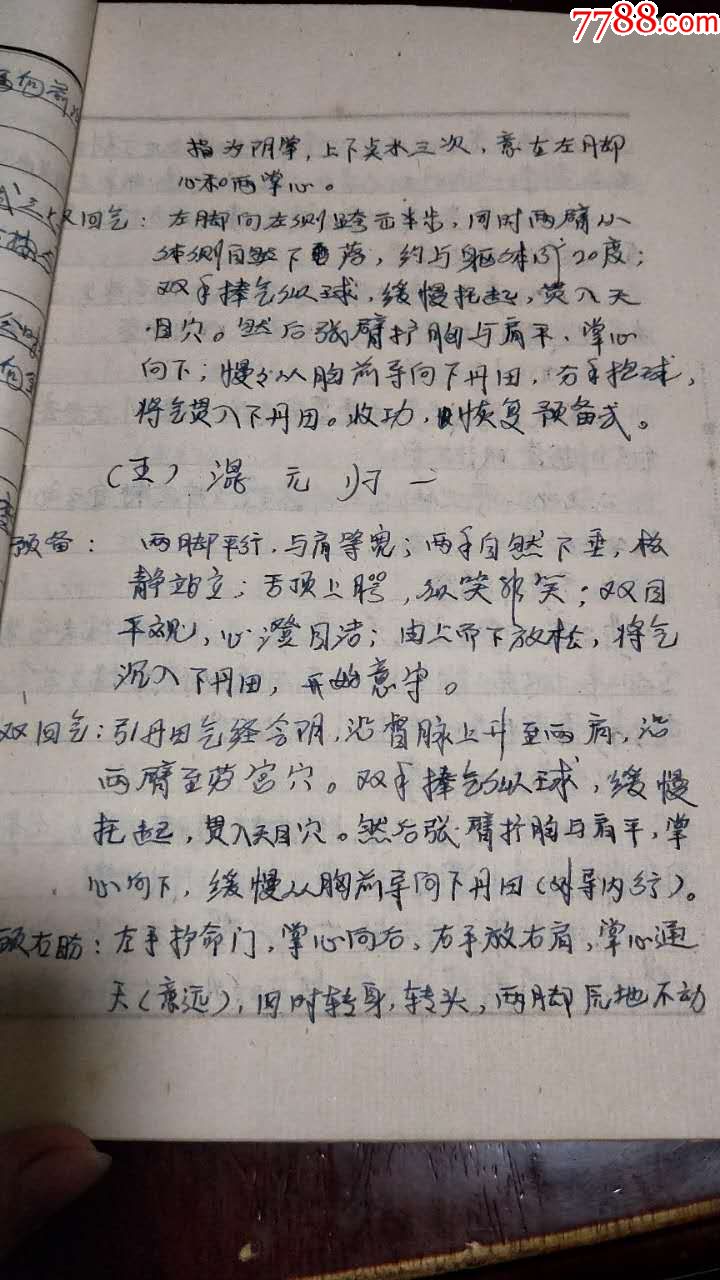 7788.com
指为阴掌，上下点水三次，意在左月却
心和两掌心。
双回气：左脚向左侧跨出半步，同时两臂从
体侧自然下垂落，约与躯体呈20度；
双手捧气似球，缓慢托起，贯入天
目穴。然后张臂扩胸与肩平，掌心
向下；慢慢从胸前导向下丹田，方手抱球，
将气贯入下丹田。收功，恢复预备式。
（五）混元归一
预备：两脚平行，与肩等宽；两手自然下垂，松
静站立；舌顶上腭，似笑非笑；双目
平视，心澄目洁；由上而下放松，将气
沉入下丹田，开始意守。
双回气：引丹田气经会阴，沿督脉上升至两肩，沿
两臂至劳宫穴。双手捧气似球，缓慢
托起，贯入天目穴。然后张臂扩胸与肩平，掌
心向下，缓慢从胸前导向下丹田（外导内行）。
顾右盼：左手护命门，掌心向后，右手放右肩，掌心通
天（意远），同时转身，转头，两脚原地不动